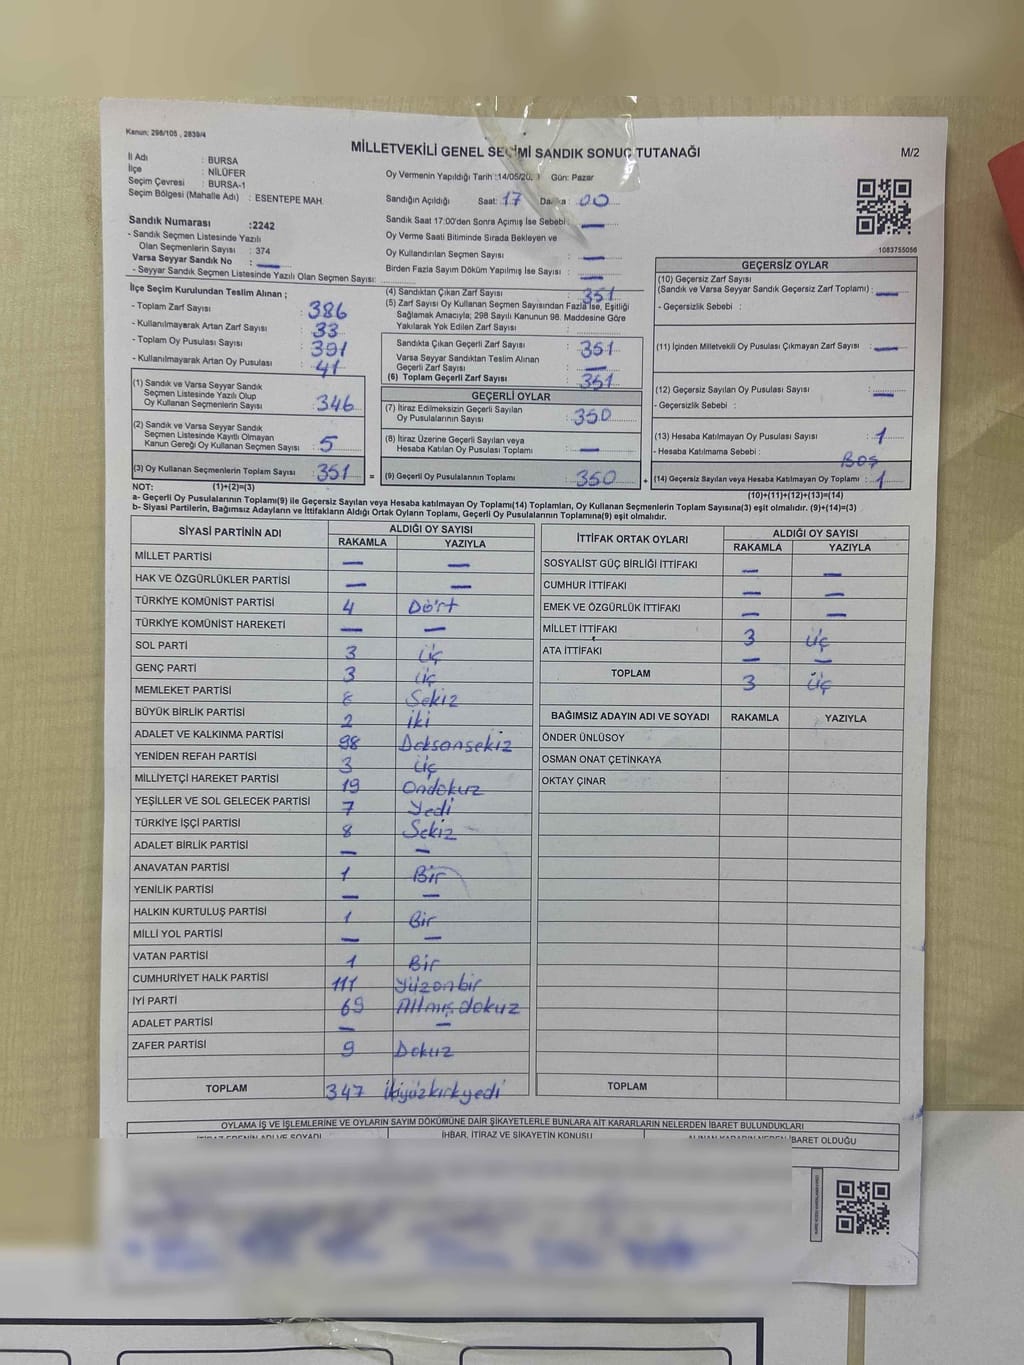 Kanun: 298/105 , 2839/4
MİLLETVEKİLİ GENEL SEÇİMİ SANDIK SONUÇ TUTANAĞI
M/2
İl Adı : BURSA
İlçe : NİLÜFER
Seçim Çevresi : BURSA-1
Seçim Bölgesi (Mahalle Adı) : ESENTEPE MAH.
Oy Vermenin Yapıldığı Tarih :14/05/20 Gün: Pazar
Sandığın Açıldığı Saat: 17 Dakika : 00
Sandık Saat 17:00'den Sonra Açımış İse Sebebi : —
Oy Verme Saati Bitiminde Sırada Bekleyen ve
Oy Kullandırılan Seçmen Sayısı : —
Birden Fazla Sayım Döküm Yapılmış İse Sayısı : —
1083755056
Sandık Numarası :2242
- Sandık Seçmen Listesinde Yazılı
Olan Seçmenlerin Sayısı : 374
Varsa Seyyar Sandık No : —
- Seyyar Sandık Seçmen Listesinde Yazılı Olan Seçmen Sayısı:
İlçe Seçim Kurulundan Teslim Alınan ;
- Toplam Zarf Sayısı : 386
- Kullanılmayarak Artan Zarf Sayısı : 33
- Toplam Oy Pusulası Sayısı : 391
- Kullanılmayarak Artan Oy Pusulası : 41
(1) Sandık ve Varsa Seyyar Sandık
Seçmen Listesinde Yazılı Olup
Oy Kullanan Seçmenlerin Sayısı : 346
(2) Sandık ve Varsa Seyyar Sandık
Seçmen Listesinde Kayıtlı Olmayan
Kanun Gereği Oy Kullanan Seçmen Sayısı : 5
(3) Oy Kullanan Seçmenlerin Toplam Sayısı : 351 =
(4) Sandıktan Çıkan Zarf Sayısı : 351
(5) Zarf Sayısı Oy Kullanan Seçmen Sayısından Fazla İse, Eşitliği
Sağlamak Amacıyla; 298 Sayılı Kanunun 98. Maddesine Göre
Yakılarak Yok Edilen Zarf Sayısı :
Sandıkta Çıkan Geçerli Zarf Sayısı : 351
Varsa Seyyar Sandıktan Teslim Alınan
Geçerli Zarf Sayısı : —
(6) Toplam Geçerli Zarf Sayısı : 351
GEÇERLİ OYLAR
(7) İtiraz Edilmeksizin Geçerli Sayılan
Oy Pusulalarının Sayısı : 350
(8) İtiraz Üzerine Geçerli Sayılan veya
Hesaba Katılan Oy Pusulası Toplamı : —
(9) Geçerli Oy Pusulalarının Toplamı : 350 +
GEÇERSİZ OYLAR
(10) Geçersiz Zarf Sayısı
(Sandık ve Varsa Seyyar Sandık Geçersiz Zarf Toplamı) : —
- Geçersizlik Sebebi :
(11) İçinden Milletvekili Oy Pusulası Çıkmayan Zarf Sayısı : —
(12) Geçersiz Sayılan Oy Pusulası Sayısı : —
- Geçersizlik Sebebi :
(13) Hesaba Katılmayan Oy Pusulası Sayısı : 1
- Hesaba Katılmama Sebebi : Boş
(14) Geçersiz Sayılan veya Hesaba Katılmayan Oy Toplamı : 1
NOT: (1)+(2)=(3)
(10)+(11)+(12)+(13)=(14)
a- Geçerli Oy Pusulalarının Toplamı(9) ile Geçersiz Sayılan veya Hesaba katılmayan Oy Toplamı(14) Toplamları, Oy Kullanan Seçmenlerin Toplam Sayısına(3) eşit olmalıdır. (9)+(14)=(3)
b- Siyasi Partilerin, Bağımsız Adayların ve İttifakların Aldığı Ortak Oyların Toplamı, Geçerli Oy Pusulalarının Toplamına(9) eşit olmalıdır.
SİYASİ PARTİNİN ADI ALDIĞI OY SAYISI
RAKAMLA YAZIYLA
MİLLET PARTİSİ — —
HAK VE ÖZGÜRLÜKLER PARTİSİ — —
TÜRKİYE KOMÜNİST PARTİSİ 4 Dört
TÜRKİYE KOMÜNİST HAREKETİ — —
SOL PARTİ 3 üç
GENÇ PARTİ 3 üç
MEMLEKET PARTİSİ 8 Sekiz
BÜYÜK BİRLİK PARTİSİ 2 iki
ADALET VE KALKINMA PARTİSİ 98 Doksansekiz
YENİDEN REFAH PARTİSİ 3 üç
MİLLİYETÇİ HAREKET PARTİSİ 19 Ondokuz
YEŞİLLER VE SOL GELECEK PARTİSİ 7 Yedi
TÜRKİYE İŞÇİ PARTİSİ 8 Sekiz
ADALET BİRLİK PARTİSİ — —
ANAVATAN PARTİSİ 1 Bir
YENİLİK PARTİSİ — —
HALKIN KURTULUŞ PARTİSİ 1 Bir
MİLLİ YOL PARTİSİ — —
VATAN PARTİSİ 1 Bir
CUMHURİYET HALK PARTİSİ 111 Yüzonbir
İYİ PARTİ 69 Altmışdokuz
ADALET PARTİSİ — —
ZAFER PARTİSİ 9 Dokuz
TOPLAM 347 ikiyüzkırkyedi
İTTİFAK ORTAK OYLARI ALDIĞI OY SAYISI
RAKAMLA YAZIYLA
SOSYALİST GÜÇ BİRLİĞİ İTTİFAKI — —
CUMHUR İTTİFAKI — —
EMEK VE ÖZGÜRLÜK İTTİFAKI — —
MİLLET İTTİFAKI 3 üç
ATA İTTİFAKI — —
TOPLAM 3 üç
BAĞIMSIZ ADAYIN ADI VE SOYADI RAKAMLA YAZIYLA
ÖNDER ÜNLÜSOY
OSMAN ONAT ÇETİNKAYA
OKTAY ÇINAR
TOPLAM
OYLAMA İŞ VE İŞLEMLERİNE VE OYLARIN SAYIM DÖKÜMÜNE DAİR ŞİKAYETLERLE BUNLARA AİT KARARLARIN NELERDEN İBARET BULUNDUKLARI
İTİRAZ EDENİN ADI VE SOYADI İHBAR, İTİRAZ VE ŞİKAYETİN KONUSU ALINAN KARARIN NEDEN İBARET OLDUĞU